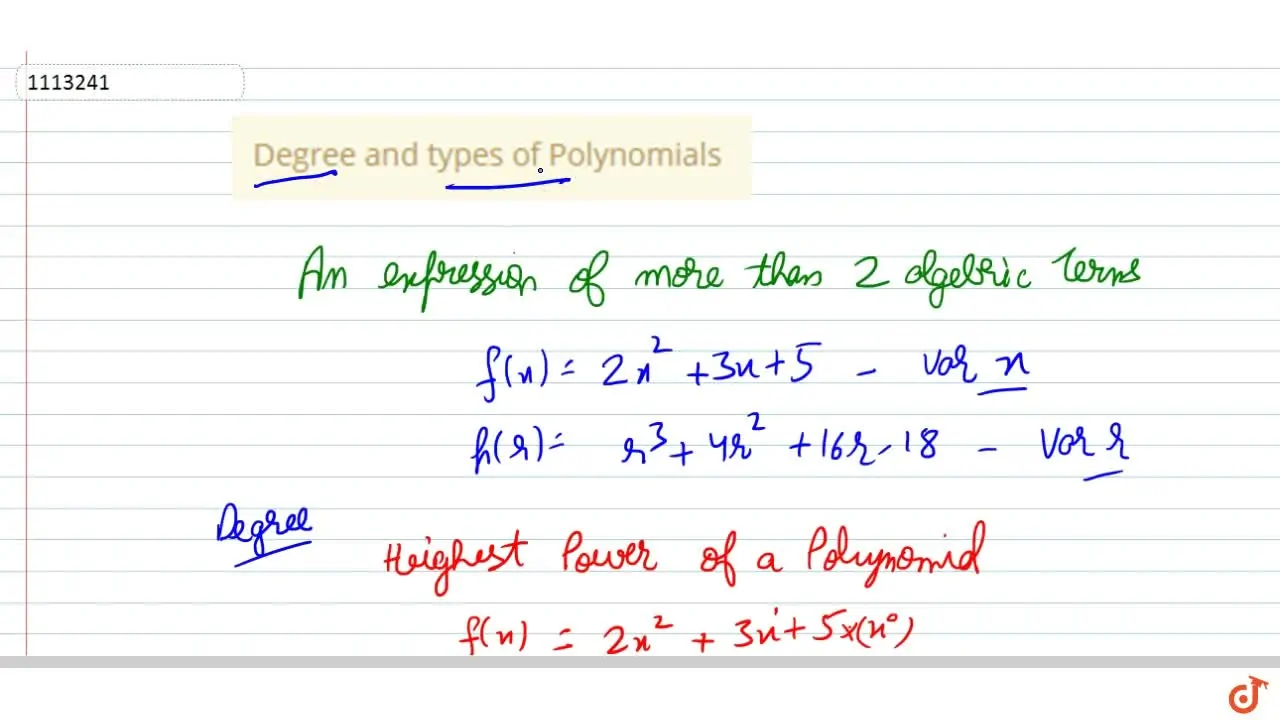 1113241
Degree and types of Polynomials
An expression of more than 2 algebric terms
f(x) = 2x² + 3x + 5 - var x
h(r) = r³ + 4r² + 16r - 18 - var r
Degree
Heighest Power of a Polynomial
f(x) = 2x² + 3x¹ + 5×(x⁰)